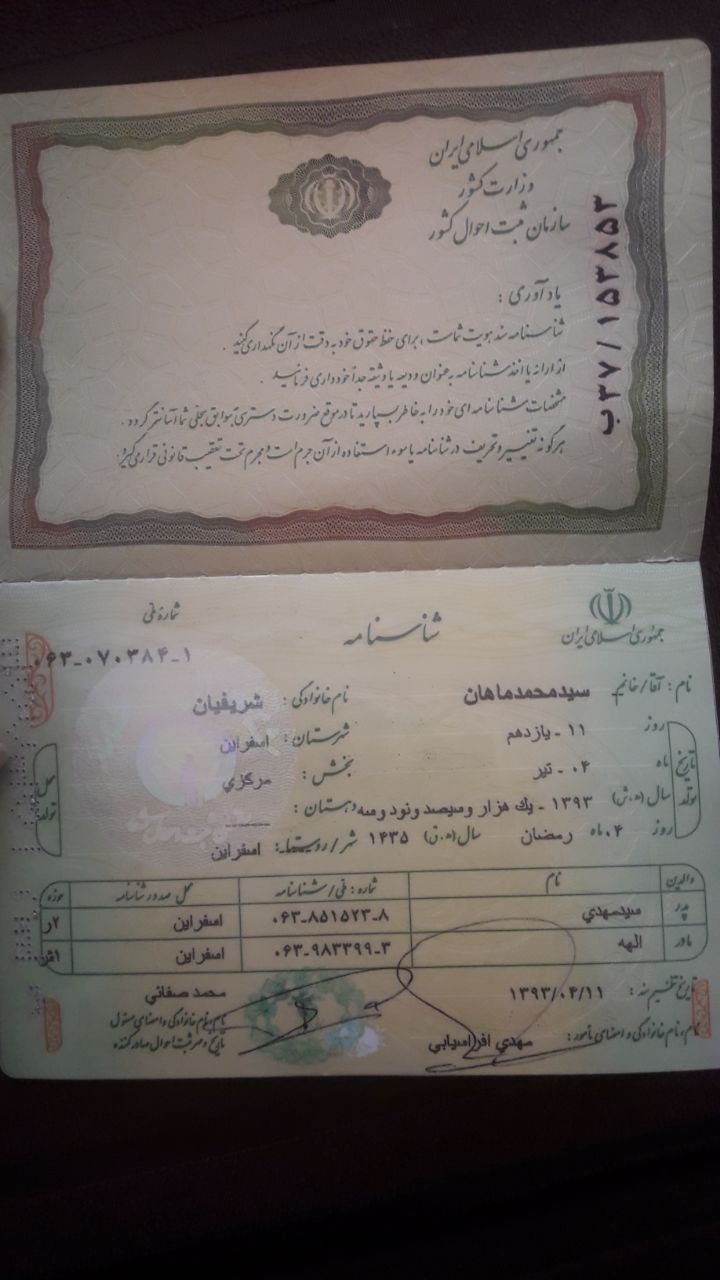 جمهوری اسلامی ایران
وزارت کشور
سازمان ثبت احوال کشور
ب۳۷/۱۵۳۸۵۳
یادآوری :
شناسنامه سند هویت شماست ، برای حفظ حقوق خود به دقت از آن نگهداری کنید .
از ارائه یا اخذ شناسنامه به عنوان ودیعه یا وثیقه جداً خودداری فرمائید .
مشخصات شناسنامه ای خود را به خاطر بسپارید تا در موقع ضرورت دسترسی به سوابق سجلی شما آسانتر گردد .
هرگونه تغییر و تحریف در شناسنامه یا سوء استفاده از آن جرم است و مجرم تحت تعقیب قانونی قرار می گیرد .
جمهوری اسلامی ایران
شناسنامه
شماره ملی
۰۶۳-۰۷۰۳۸۴-۱
نام : آقا/خانم سیدمحمدماهان نام خانوادگی : شریفیان
تاریخ تولد
روز ۱۱ - یازدهم شهرستان : اسفراین
ماه ۰۴ - تیر بخش : مرکزي
سال (ه.ش) ۱۳۹۳ - یك هزار وسیصد ونود وسه دهستان : ـــــ
روز ۰۴ ماه رمضان سال (ه.ق) ۱۴۳۵ شهر/روستا: اسفراین
محل تولد
والدین نام شماره : ملی/شناسنامه محل صدور شناسنامه حوزه
پدر سیدمهدي ۰۶۳-۸۵۱۵۲۳-۸ اسفراین ۲ر
مادر الهه ۰۶۳-۹۸۳۳۹۹-۳ اسفراین
تاریخ تنظیم سند : ۱۳۹۳/۰۴/۱۱ محمد صفائي
نام، نام خانوادگی و امضای مأمور : مهدي افراسیابي
نام، نام خانوادگی و امضای مسئول
تاریخ و مهر ثبت احوال صادرکننده